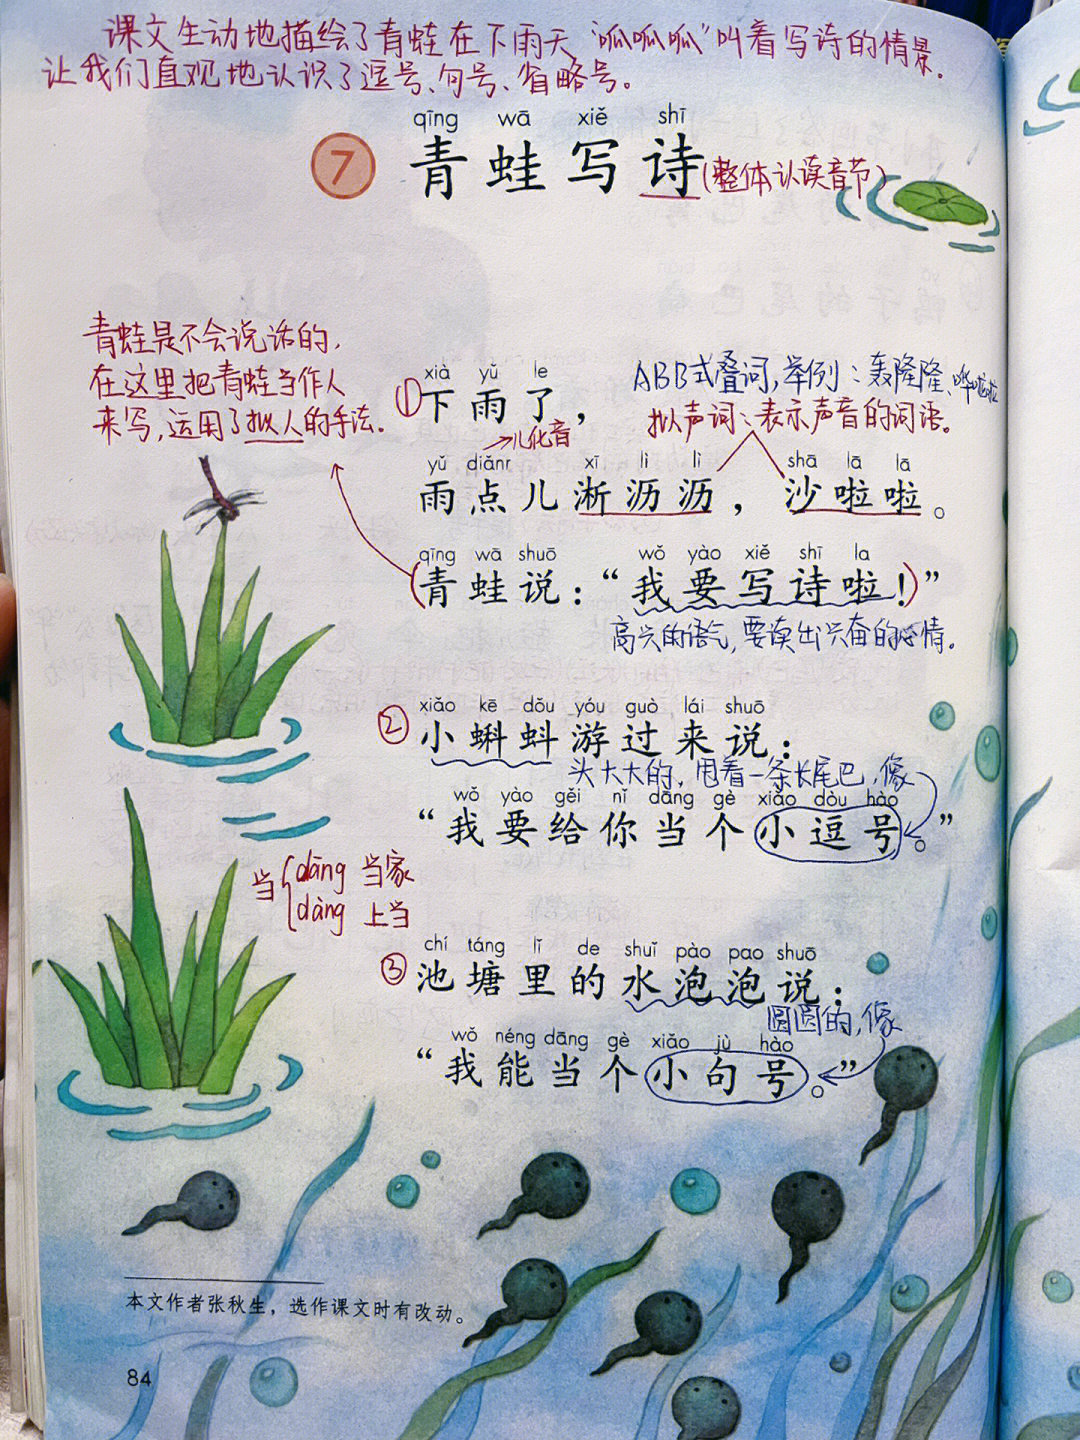 课文生动地描绘了青蛙在下雨天“呱呱呱”叫着写诗的情景.
让我们直观地认识了逗号、句号、省略号。
qīng wā xiě shī
7 青蛙写诗(整体认读音节)
青蛙是不会说话的,
在这里把青蛙当作人
来写,运用了拟人的手法.
ABB式叠词,举例:轰隆隆、哗啦啦
拟声词:表示声音的词语。
xià yǔ le
①下雨了，
儿化音
yǔ diǎnr xī lì lì shā lā lā
雨点儿淅沥沥，沙啦啦。
qīng wā shuō wǒ yào xiě shī la
(青蛙说：“我要写诗啦！)”
高兴的语气,要读出兴奋的心情。
xiǎo kē dǒu yóu guò lái shuō
②小蝌蚪游过来说：
头大大的,甩着一条长尾巴,像
wǒ yào gěi nǐ dāng gè xiǎo dòu hào
“我要给你当个小逗号。”
当 dāng 当家
dàng 上当
chí táng lǐ de shuǐ pào pao shuō
③池塘里的水泡泡说：
圆圆的,像
wǒ néng dāng gè xiǎo jù hào
“我能当个小句号。”
本文作者张秋生，选作课文时有改动。
84